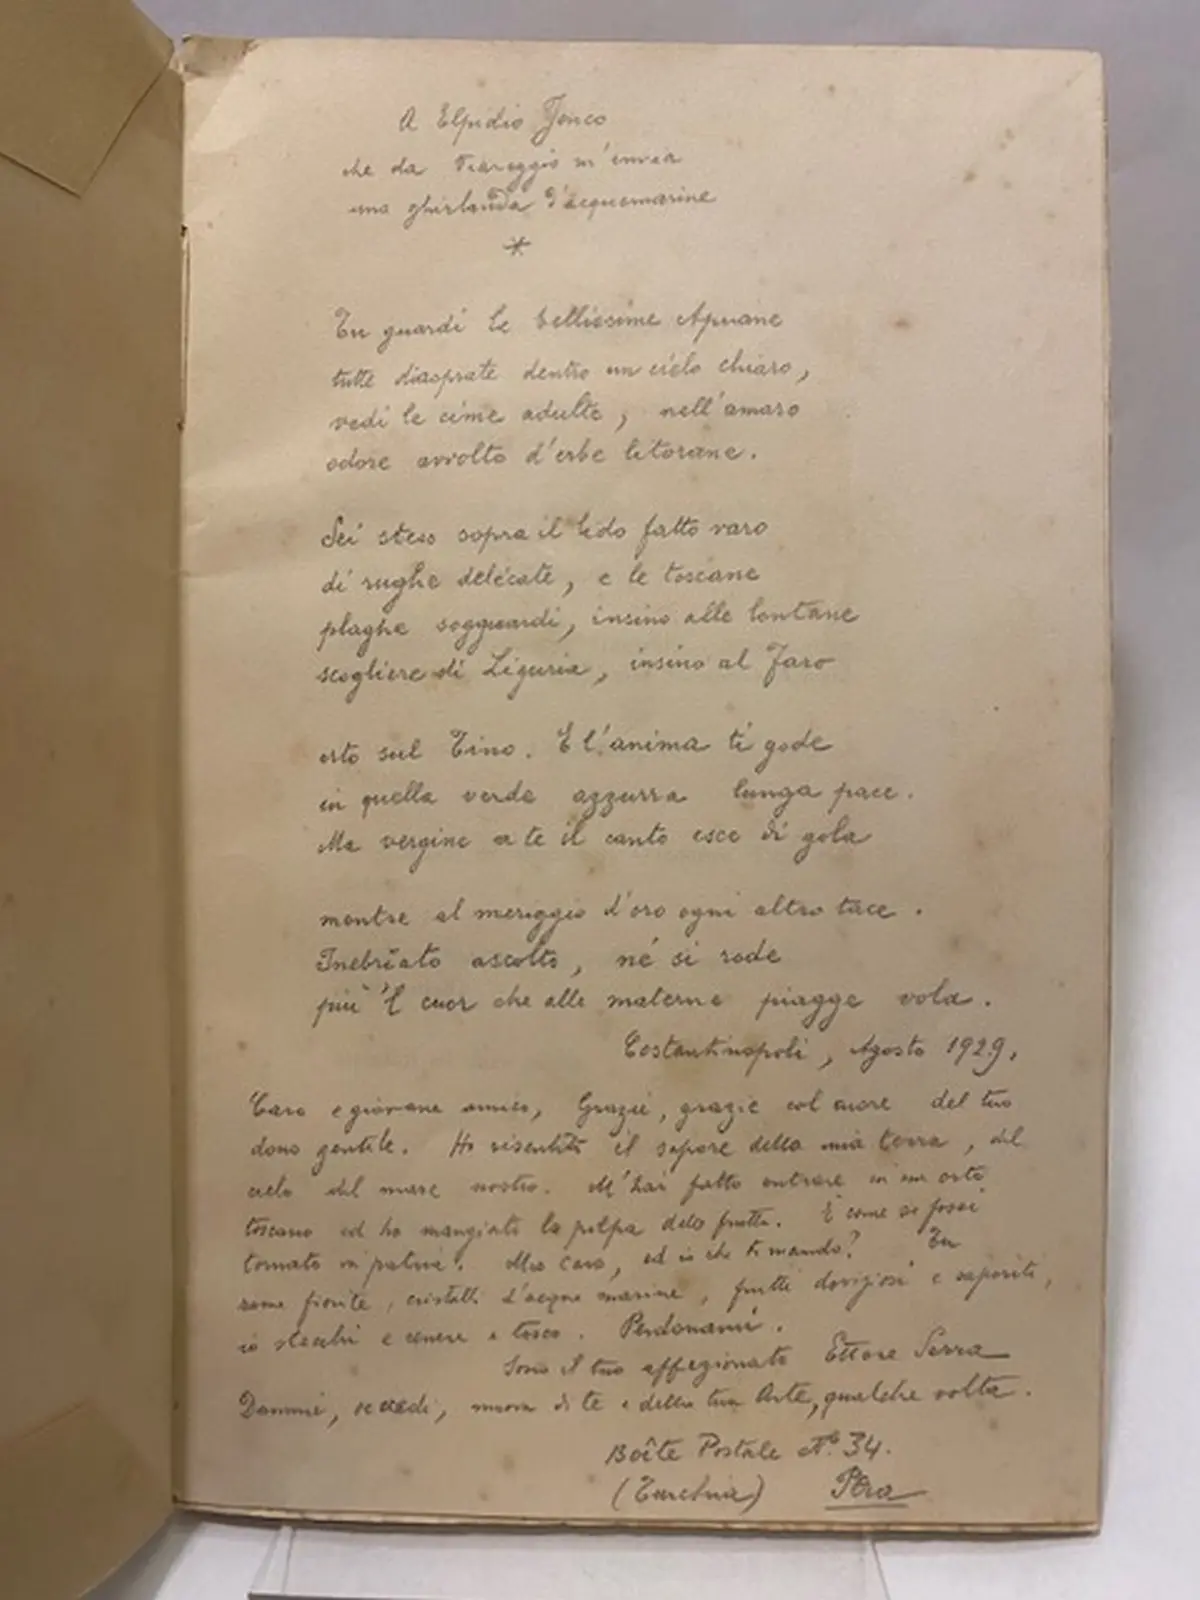 A Elpidio Jenco
che da Viareggio m'invia
una ghirlanda d'acquemarine
*
Tu guardi le bellissime Apuane
tutte diasprate dentro un cielo chiaro,
vedi le cime adulte, nell'amaro
odore avvolto d'erbe litorane.
Sei steso sopra il lido fatto varo
di rughe delicate, e le toscane
plaghe sogguardi, insino alle lontane
scogliere di Liguria, insino al Faro
erto sul Tino. E l'anima ti gode
in quella verde azzurra lunga pace.
Ma vergine a te il canto esce di gola
mentre al meriggio d'oro ogni altro tace.
Inebriato ascolto, né si rode
più 'l cuor che alle materne piagge vola.
Costantinopoli, Agosto 1929.
Caro e giovane amico, Grazie, grazie col cuore del tuo
dono gentile. Ho risentito il sapore della mia terra, del
cielo del mare nostro. M'hai fatto entrare in un orto
toscano ed ho mangiato la polpa delle frutta. È come se fossi
tornato in patria. Mio caro, ed io che ti mando? Tu
rame fiorite, cristalli d'acque marine, frutti doviziosi e saporiti,
io stecchi e cenere e tosco. Perdonami.
Sono il tuo affezionato Ettore Serra
Dammi, se credi, nuova di te e della tua Arte, qualche volta.
Boîte Postale N.º 34.
(Turchia) Pera